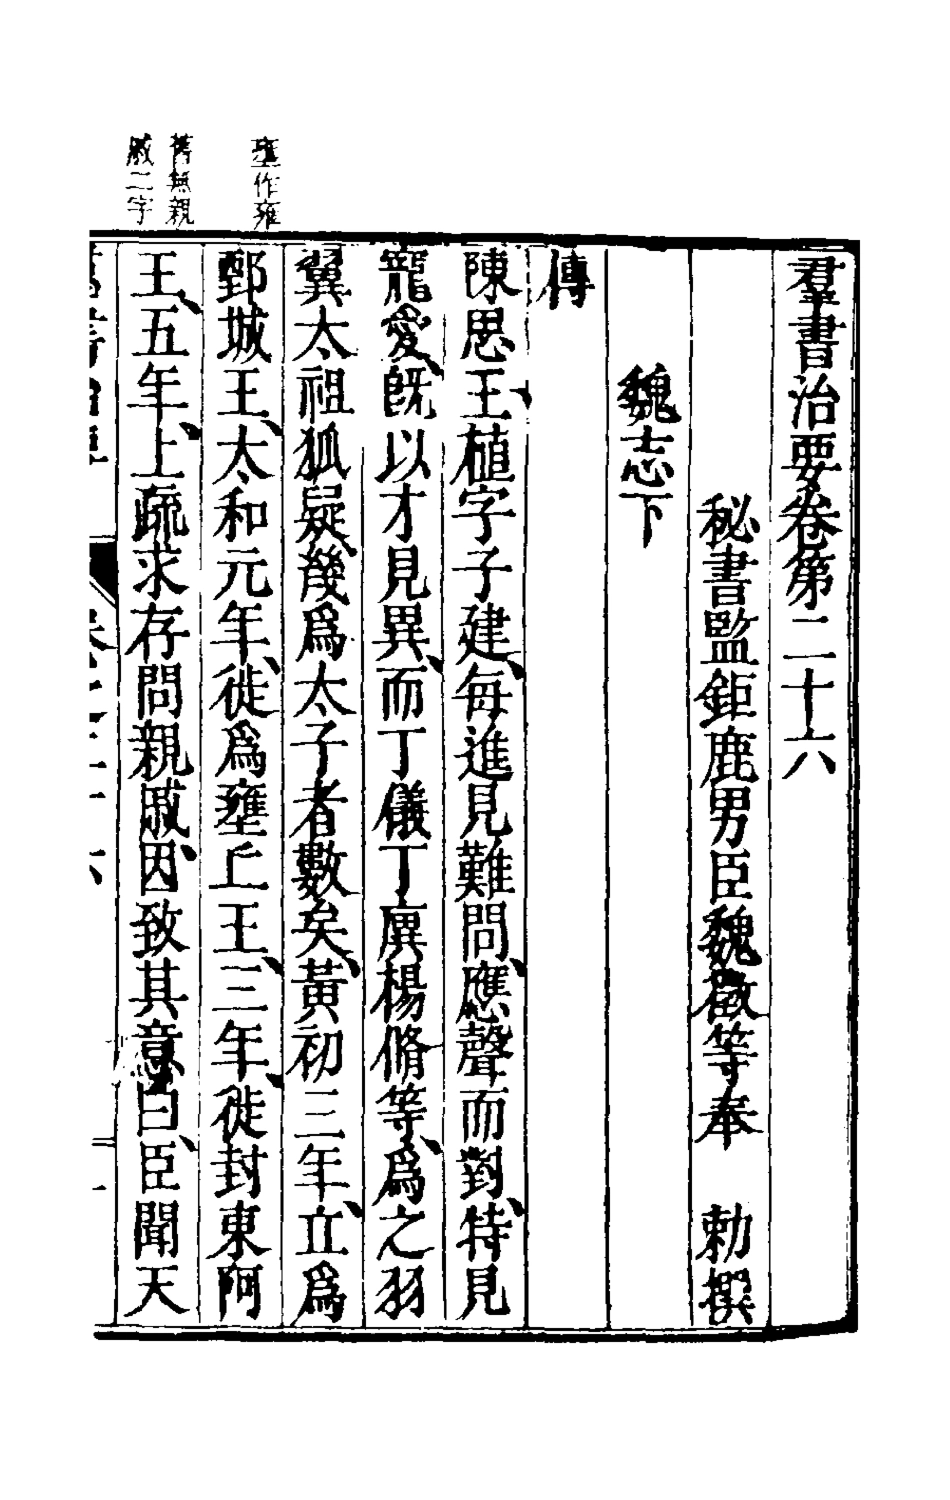 羣書治要卷第二十六
秘書監鉅鹿男臣魏徵等奉　勅撰
魏志下
傳
陳思王植字子建、每進見難問、應聲而對、特見
寵愛、旣以才見異、而丁儀丁廙楊脩等、爲之羽
翼太祖狐疑、幾爲太子者數矣、黃初三年、立爲
鄄城王、太和元年、徙爲壅丘王、三年、徙封東阿
王、五年、上疏求存問親戚、因致其意曰、臣聞天
壅作雍
舊無親
戚二字